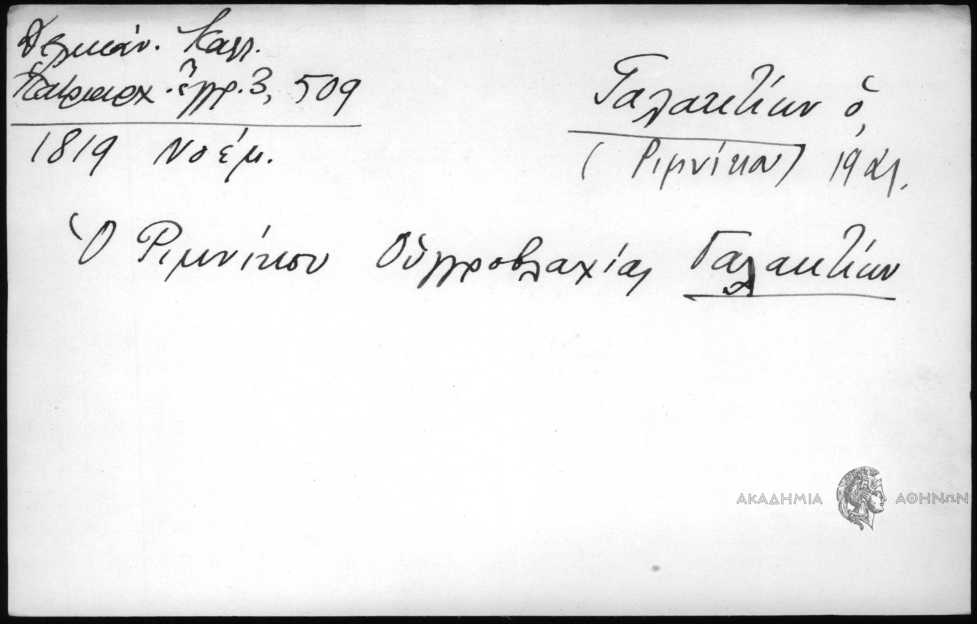 Δελικάν. Καλλ.
Πατριαρχ. ἔγγρ. 3, 509
1819 Νοέμ.
Γαλακτίων ὁ,
(Ριμνίκου) 19 αἰ.
Ὁ Ριμνίκου Οὑγγροβλαχίας Γαλακτίων
ΑΚΑΔΗΜΙΑ ΑΘΗΝΩΝ